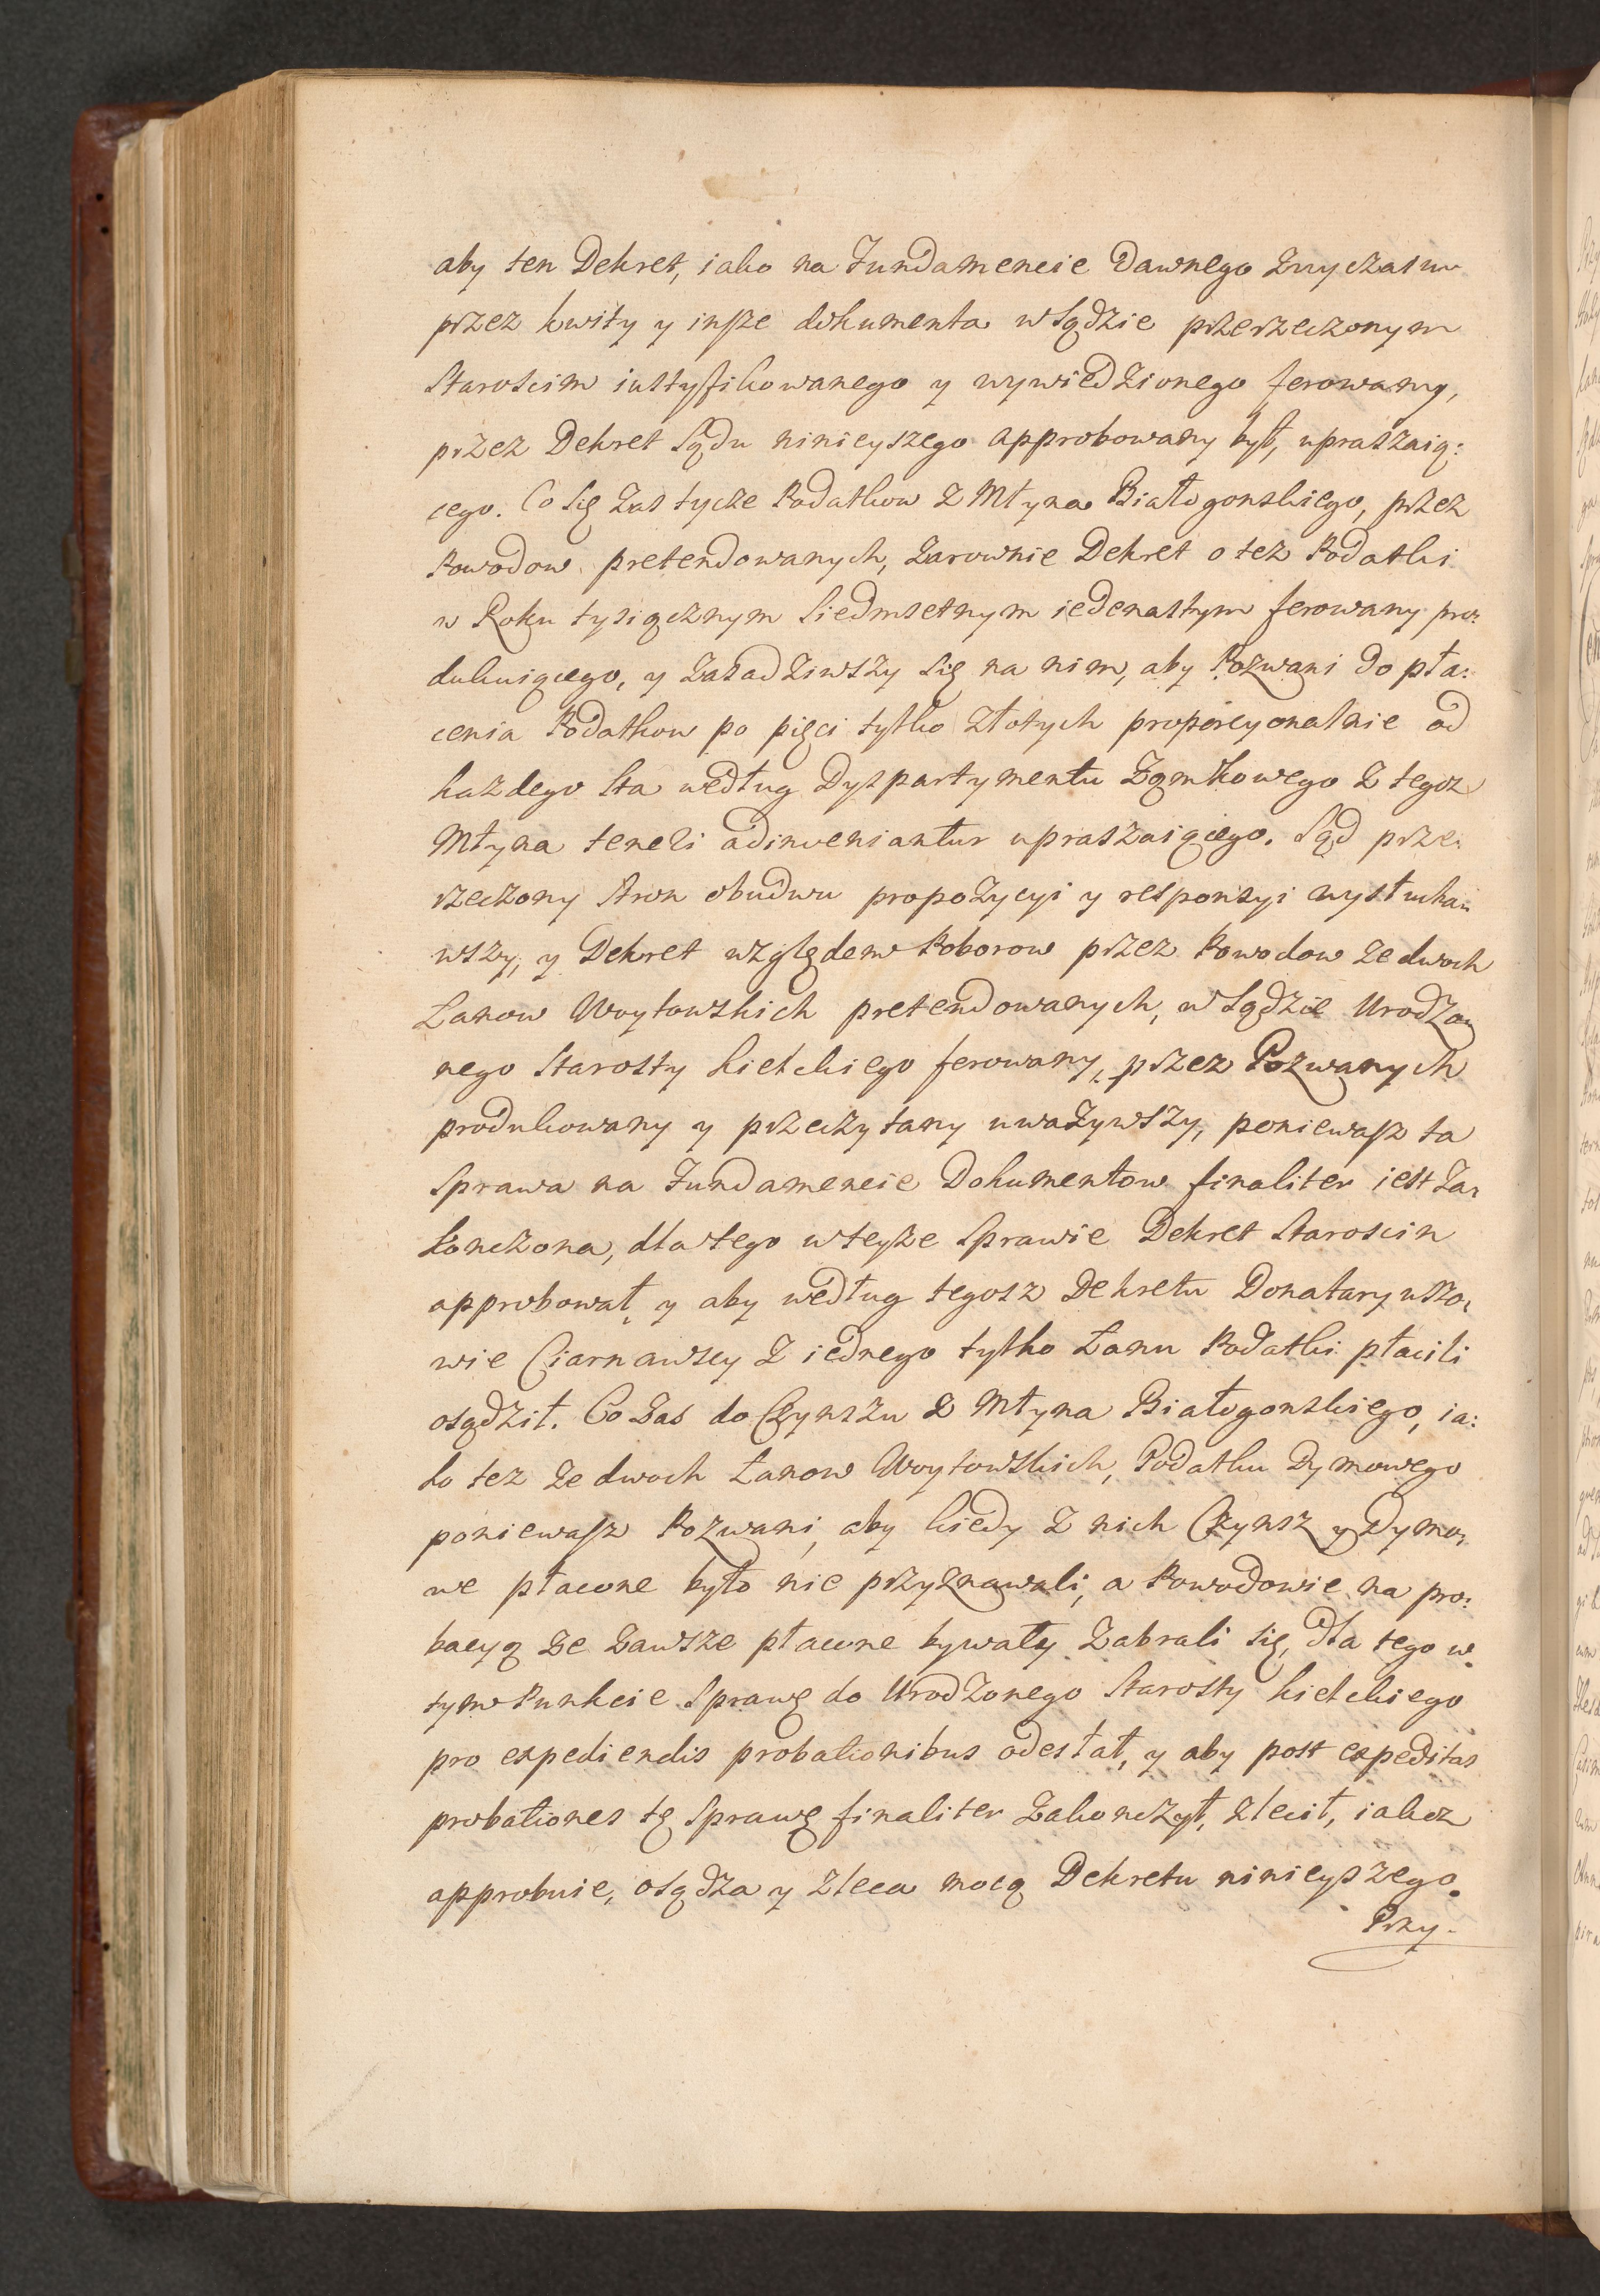 aby ten Dekret, iako na Fundamencie Dawnego Zwyczaiu
przez kwity y insze dokumenta w Sądzie przerzeczonym
Starościm iustyfikowanego y wywiedzionego ferowany,
przez Dekret Sądu ninieyszego approbowany był, upraszaią:
cego. Co Się Zas tycze Podatkow z Młyna Białogonskiego, przez
Powodow pretendowanych, Zarownie Dekret o tez Podatki
w Roku tysiącznym Siedmsetnym iedenastym ferowany pro:
dukuiącego, y Zasadziwszy Się na nim, aby Pozwani do pła:
cenia Podatkow po pięci tylko Złotych proporcyonalnie od
każdego Sta według Dyspartymentu Zamkowego z tegoz
Młyna teneri adinveniantur upraszaiącego. Sąd prze:
rzeczony Stron obudwu propozycyi y responsyi wysłucha:
wszy, y Dekret względem Poborow przez Powodow ze dwoch
Łanow Woytowskich pretendowanych, w Sądzie Urodzo:
nego Starosty Kielckiego ferowany, przez Pozwanych
produkowany y przeczytany uważywszy, poniewasz ta
Sprawa na Fundamencie Dokumentow finaliter iest Za:
konczona, dla tego w teyze Sprawie Dekret Starościn
approbował, y aby według tegosz Dekretu Donataryuszo:
wie Ciarnawscy z iednego tylko Łanu Podatki płacili
osądził. Co Zas do Czynszu z Młyna Białogonskiego, ia:
ko tez ze dwoch Łanow Woytowskich, Podatku Dymowego
poniewasz Pozwani, aby kiedy z nich Czynsz y Dymo:
we płacone było nie przyznawali, a Powodowie na pro:
bacyą ze Zawsze płacone bywały Zabrali Się, dla tego w
tym Punkcie Sprawę do Urodzonego Starosty Kielckiego
pro expediendis probationibus odesłał, y aby post expeditas
probationes tę Sprawę finaliter Zakonczył, Zlecił, iakoz
approbuie, osądza y Zleca mocą Dekretu ninieyszego.
Przy-